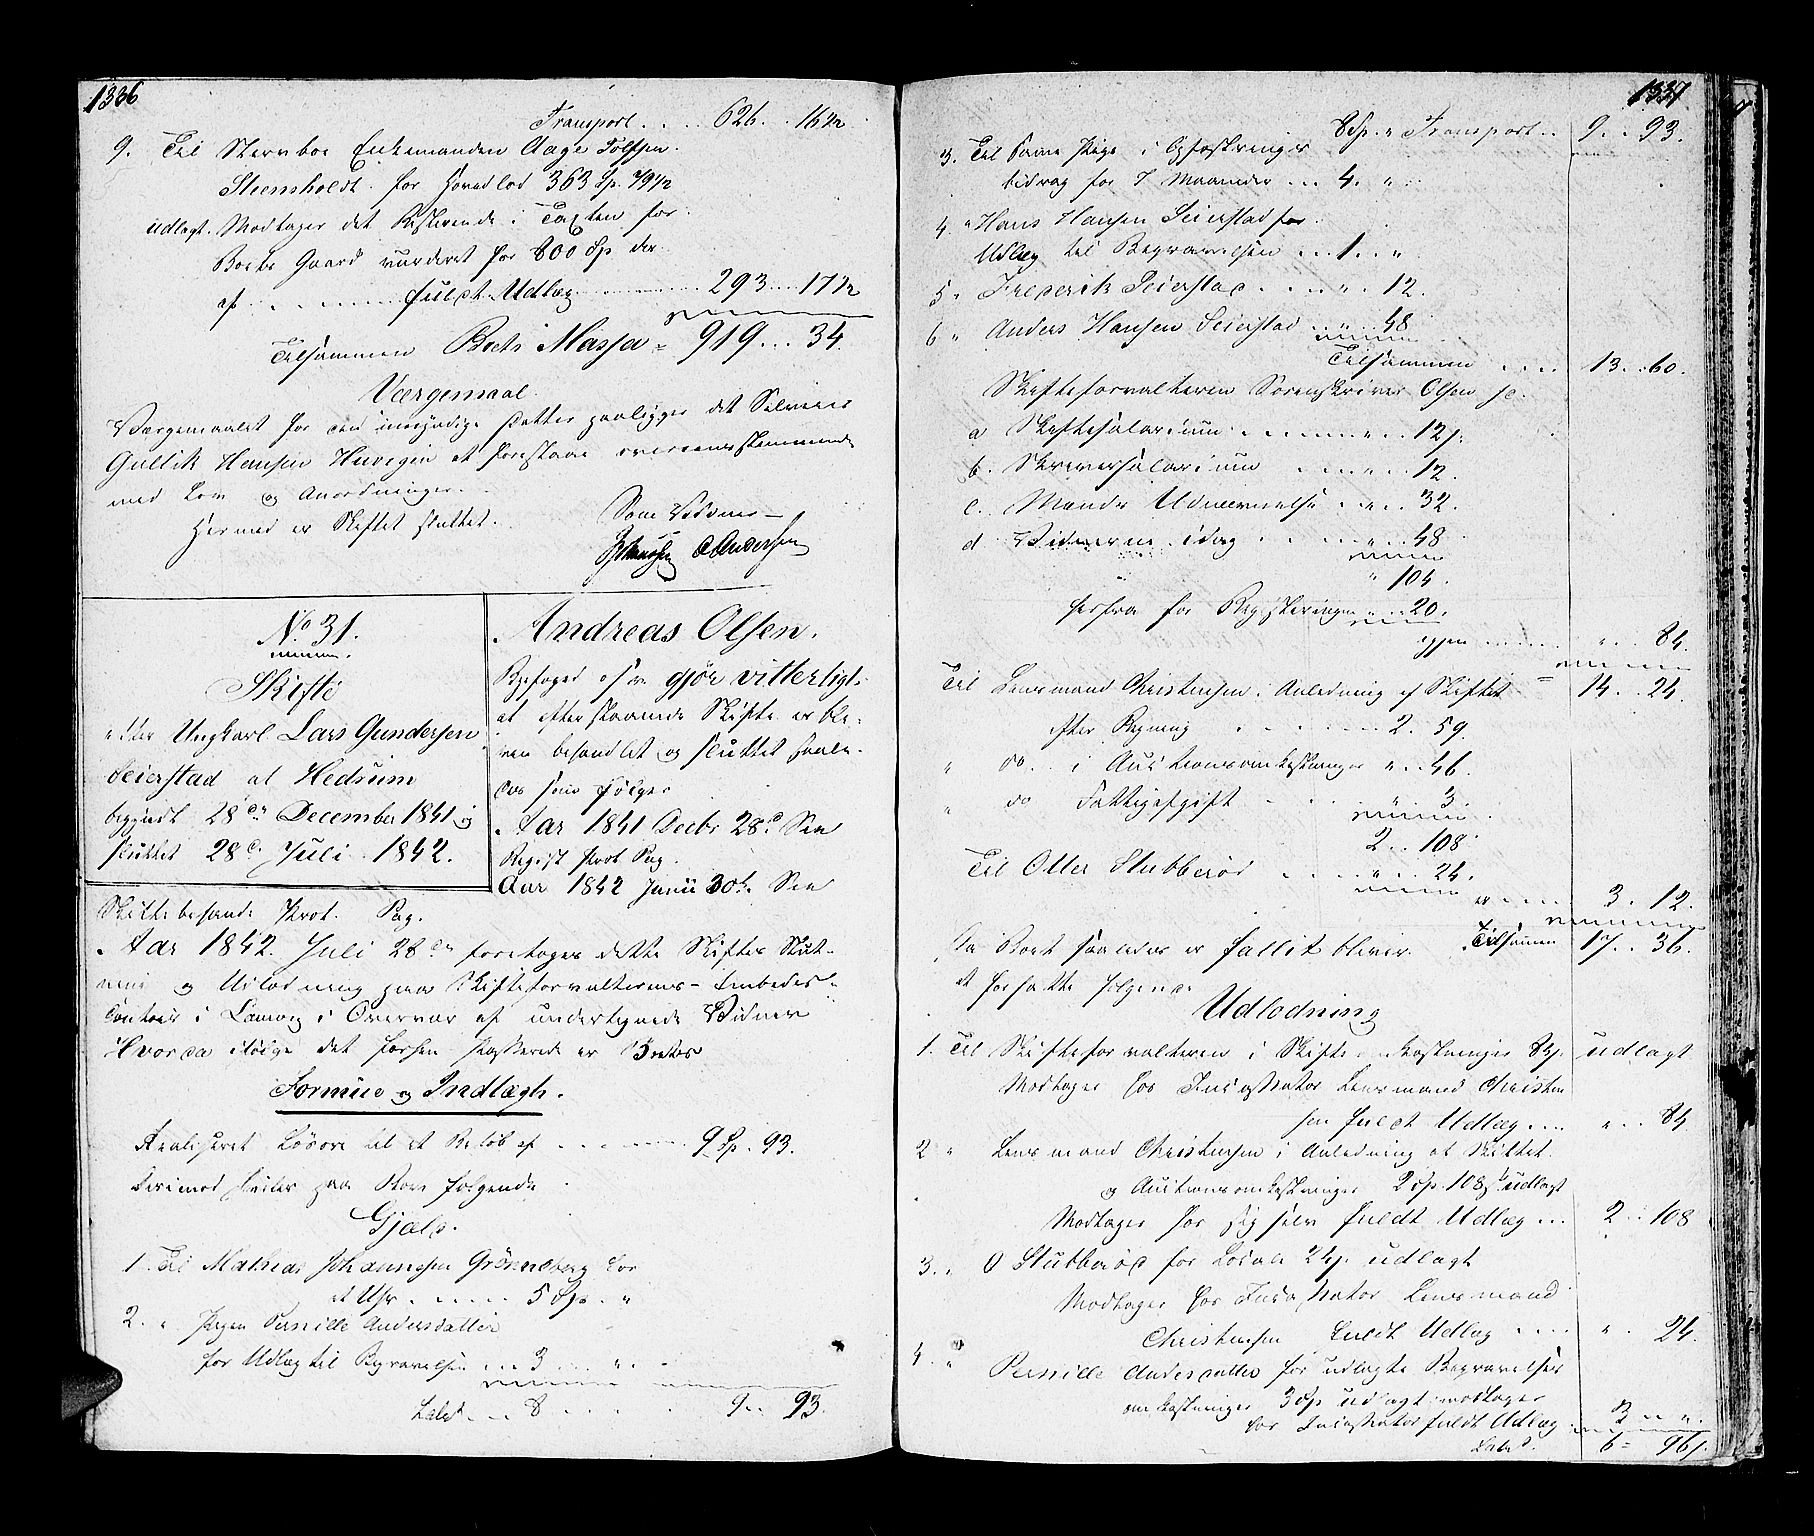 1336
Transport . . . 626 . . 16½
9. Til Stervboe Enkemanden Aage Tolfsen
Steensholdt for Hovedlod 363 Sp. 79½
udlagt. Modtager det Resterende i Taxten for
Boets Gaard vurderet for 800 Sp der
af . . . . . fuldt Udlæg . . . . 293 . . . 17½
Tilsammen Boets Massa = 919 . . . 34.
Værgemaal
Værgemaalet for den umyndige Datter paaligger det Selveier
Gullik Hansen Huvegen at forestaae overeensstemmende
med Lov og Anordninger.
Hermed er Skiftet sluttet.
Som Vidner
Andersen
No 31.
Skifte
efter Ungkarl Lars Gundersen
Seierstad at Hedrum
begyndt 28de December 1841 og
sluttet 28de Juli 1842.
Andreas Olsen,
Byefoged o s v gjør vitterligt
at efterstaaende Skifte er ble-
ven behandlet og sluttet saale-
des som følger
Aar 1841 Decbr 28d See
Regist Prot Pag.
Aar 1842 Junii 30te See
Skiftebehand: Prot. Pag.
Aar 1842. Juli 28de foretoges dette Skiftes Slut-
ning og Udlodning paa Skifteforvalterens Embeds-
Contoir i Laurvig i Overvær af undertegnede Vidner
Hvorda ifølge det forhen passerede er Boets
Formue og Indtægt.
Realiseret Løsøre til et Beløb af . . . . . 9 Sp. 93.
Derimod hviler paa Boet følgende
Gjæld.
1. Til Mathias Johannesen Grønneberg for
et Uhr . . . . . 5 Sp. "
2. " Pigen Pernille Andersdatter
for Udlæg til Begravelsen . . . 3 . . . "
Latus . . . 8 . . . . 9 . . 93.
1337
8 Sp. " Transport . . 9 . . 93.
3. Til samme Pige i Opfostrings
bidrag for 7 Maaneder . . . 4. "
4. " Hans Hansen Seierstad for
Udlæg til Begravelsen . . . 1. . "
5. " Frederik Seierstad . . . . " . 12.
6 " Anders Hansen Seierstad . . " . . 48
Tilsammen . . . . 13. . 60.
Skifteforvalteren Sorenskriver Olsen
a Skiftesalarium . . . . . " . . 12
b. Skriversalarium . . . . " . . 12.
c. Mænds Udnævnelse . . " . . 32.
d Vidnerne idag . . . . " . . 48
" 104.
herfra for Registreringen " . . 20.
igjen . . . . " . . . 84.
= 14. . 24.
Til Lensmand Christensen i Anledning af Skiftet
efter Regning . . . . . . 2. 59.
" do . . i Auctionsomkostninger " . . 46.
" do Fattigafgift . . . " . . 3.
2. . 108
Til Otter Stubberød . . . . " . . 24.
er . . . . 3. 12.
Tilsammen 17. . 36.
Da Boet saaledes er fallit bliver
at forfatte følgende
Udlodning
1. Til Skifteforvalteren i Skifteomkostninger 84 udlagt
Modtager hos Incassator Lensmand Christen
sen fuldt Udlæg . . . " . . 84
2 " Lensmand Christensen i Anledning af Skiftet
og Auctionsomkostninger 2 Sp. 108 s udlagt
Modtager hos sig selv fuldt Udlæg . . . 2 . . 108
3. " O Stubberød for Locale 24 s. udlagt
Modtager hos Incassator Lensmand
Christensen fuldt Udlæg . . . . " . 24.
4. " Pernille Andersdatter for udlagte Begravelses
omkostninger 3 Sp udlagt modtager
hos Incassator fuldt Udlæg . 3 . . "
Latus. 6 = 96